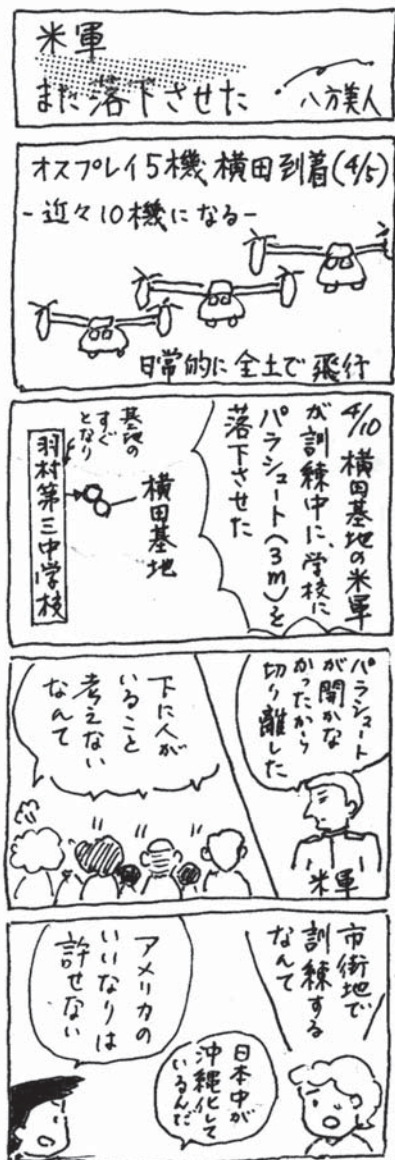 米軍
また落下させた
八方美人
オスプレイ5機 横田到着(4/5)
-近々10機になる-
日常的に全土で飛行
4/10 横田基地の米軍
が訓練中に、学校に
パラシュート(3m)を
落下させた
横田基地
基地の
すぐ
となり
羽村第三中学校
パラシュート
が開かな
かったから
切り離した
米軍
下に人が
いること
考えない
なんて
市街地で
訓練する
なんて
日本中が
沖縄化して
いるんだ
アメリカの
いいなりは
許せない